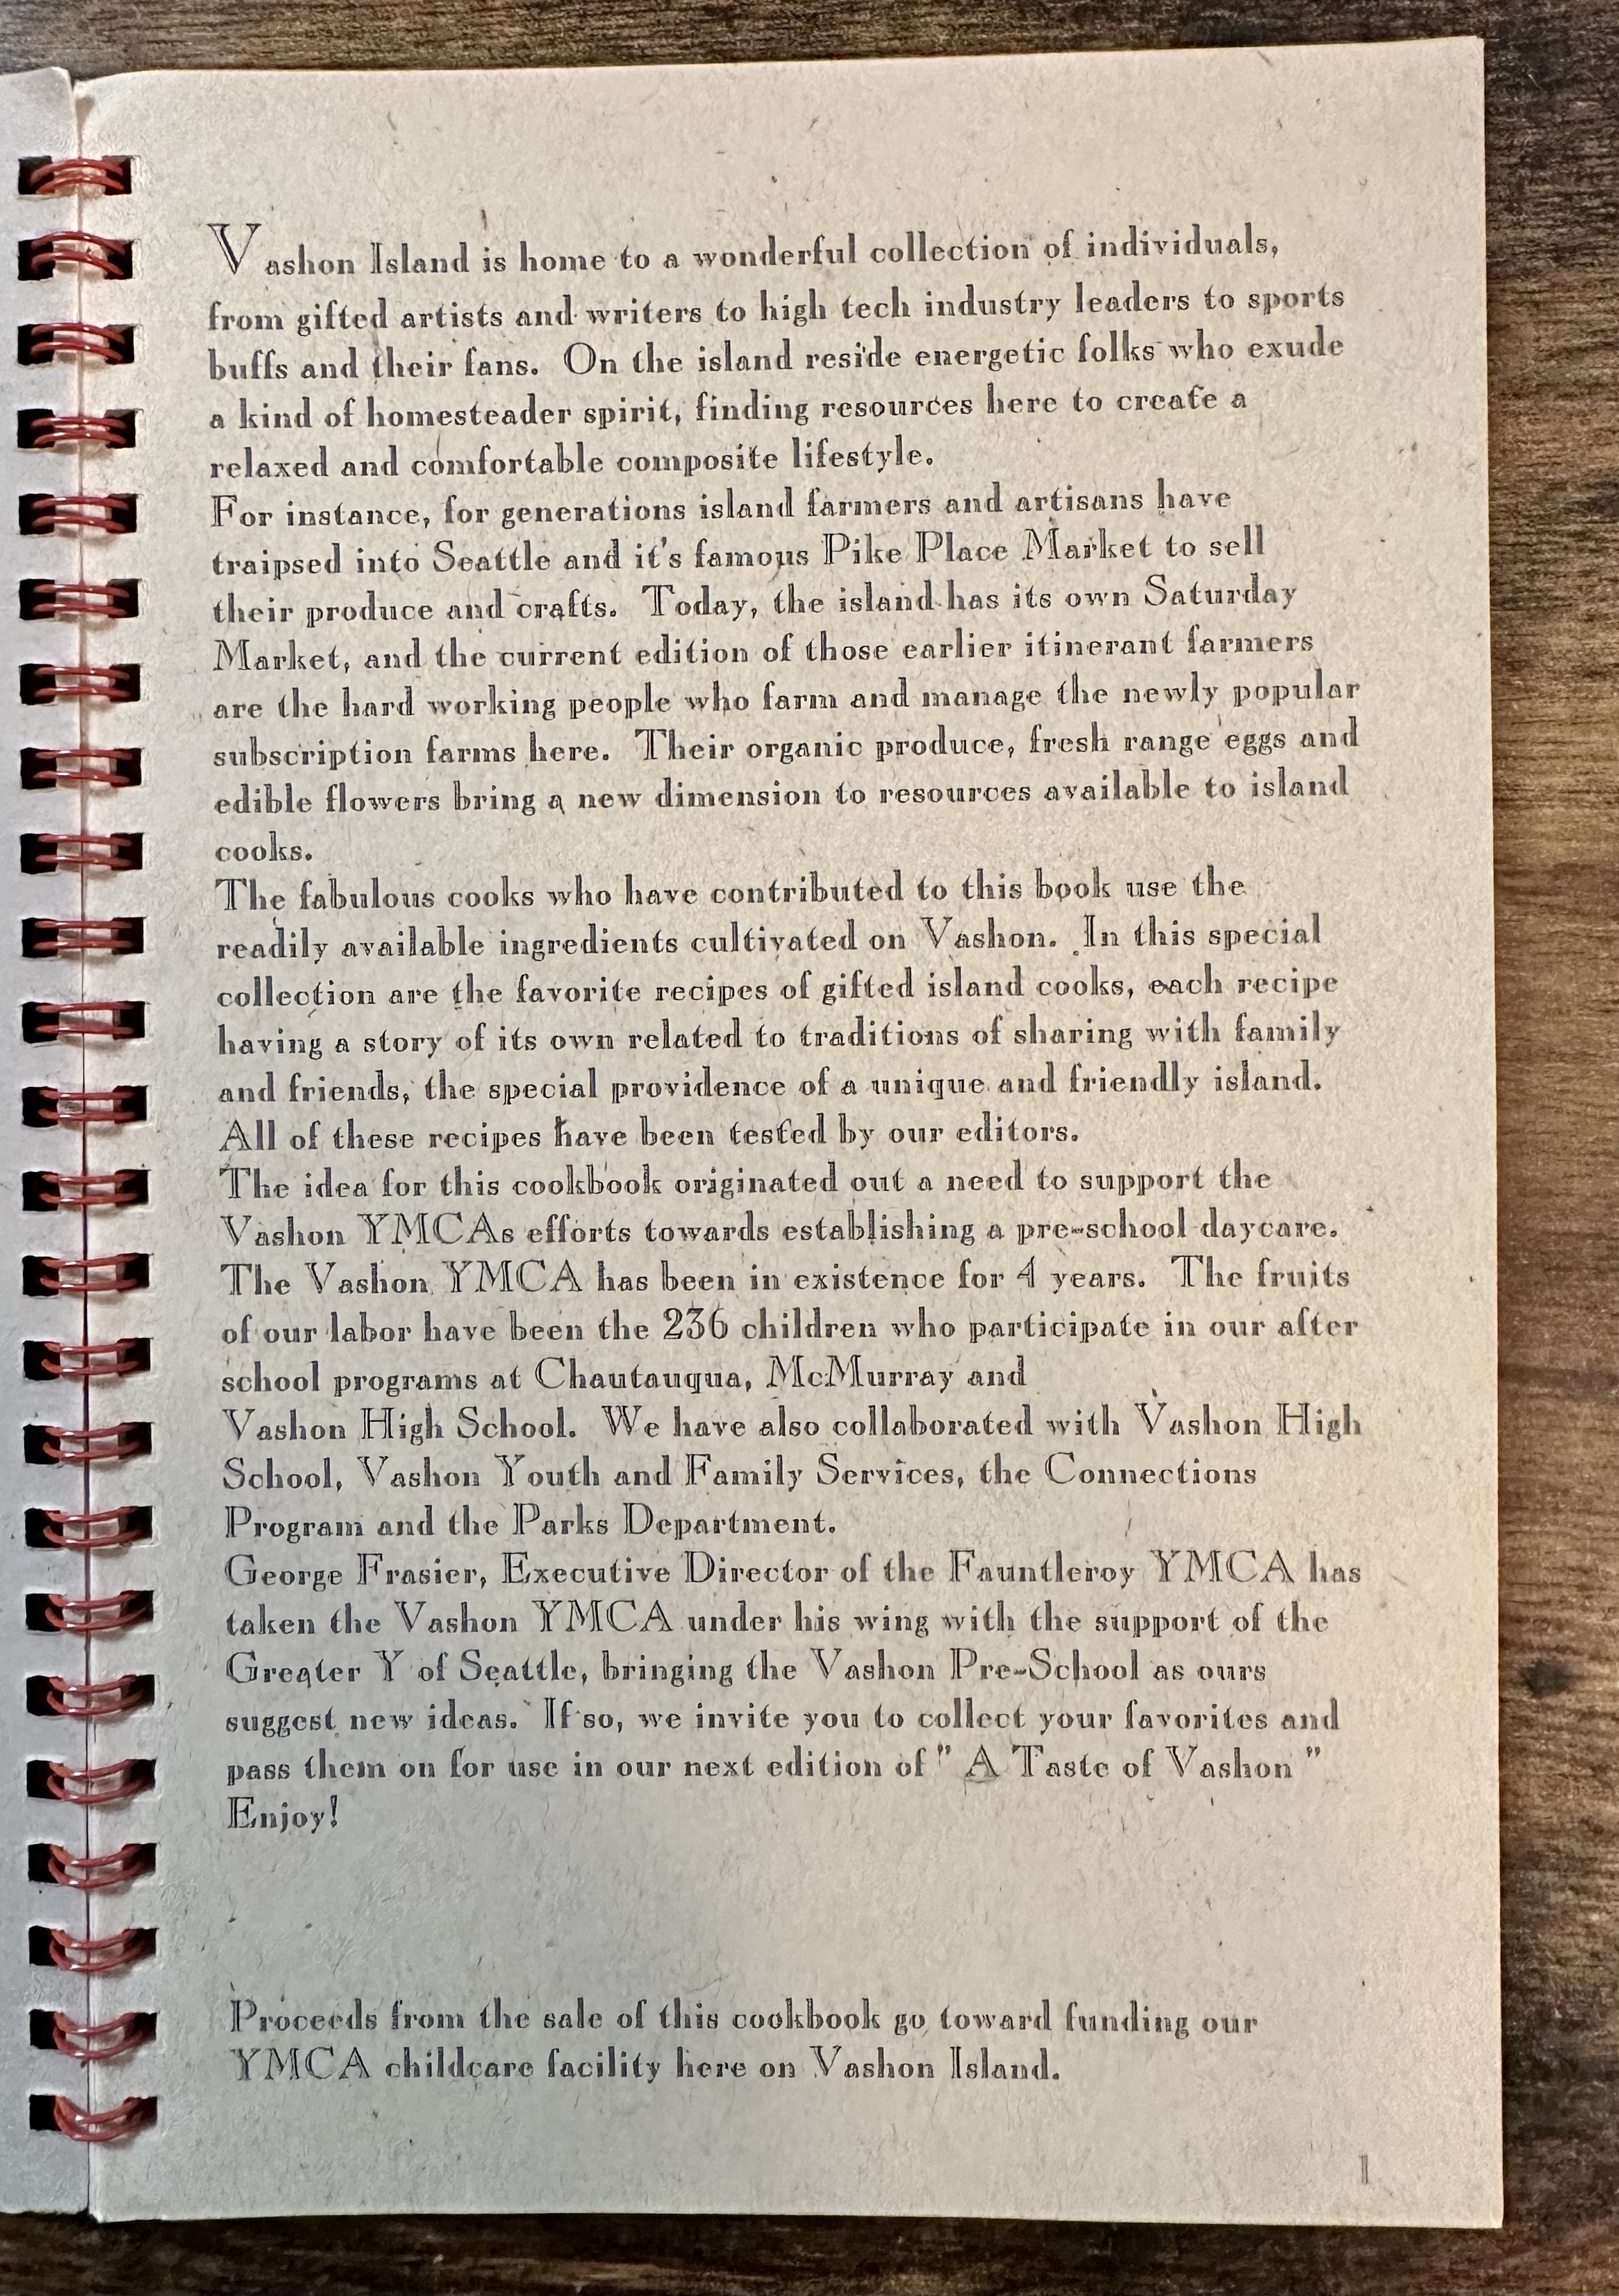 Vashon Island is home to a wonderful collection of individuals,
from gifted artists and writers to high tech industry leaders to sports
buffs and their fans. On the island reside energetic folks who exude
a kind of homesteader spirit, finding resources here to create a
relaxed and comfortable composite lifestyle.
For instance, for generations island farmers and artisans have
traipsed into Seattle and it's famous Pike Place Market to sell
their produce and crafts. Today, the island has its own Saturday
Market, and the current edition of those earlier itinerant farmers
are the hard working people who farm and manage the newly popular
subscription farms here. Their organic produce, fresh range eggs and
edible flowers bring a new dimension to resources available to island
cooks.
The fabulous cooks who have contributed to this book use the
readily available ingredients cultivated on Vashon. In this special
collection are the favorite recipes of gifted island cooks, each recipe
having a story of its own related to traditions of sharing with family
and friends, the special providence of a unique and friendly island.
All of these recipes have been tested by our editors.
The idea for this cookbook originated out a need to support the
Vashon YMCAs efforts towards establishing a pre-school daycare.
The Vashon YMCA has been in existence for 4 years. The fruits
of our labor have been the 236 children who participate in our after
school programs at Chautauqua, McMurray and
Vashon High School. We have also collaborated with Vashon High
School, Vashon Youth and Family Services, the Connections
Program and the Parks Department.
George Frasier, Executive Director of the Fauntleroy YMCA has
taken the Vashon YMCA under his wing with the support of the
Greater Y of Seattle, bringing the Vashon Pre-School as ours
suggest new ideas. If so, we invite you to collect your favorites and
pass them on for use in our next edition of " A Taste of Vashon "
Enjoy!
Proceeds from the sale of this cookbook go toward funding our
YMCA childcare facility here on Vashon Island.
1